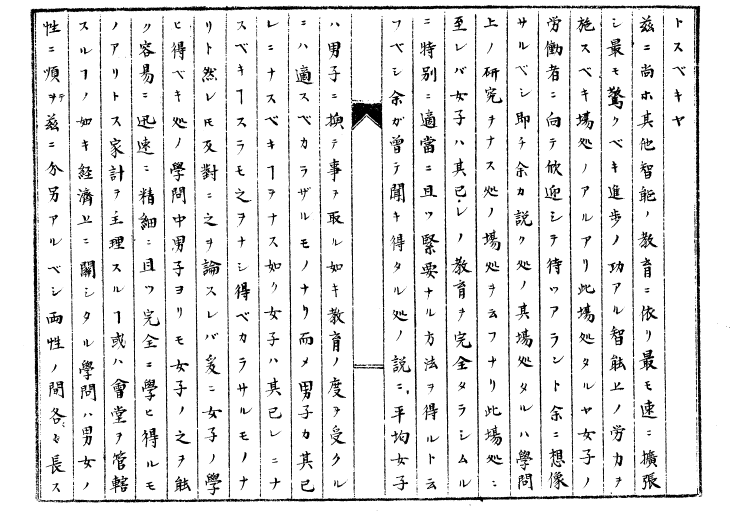 トスベキヤ
茲ニ尚ホ其他智能ノ教育ニ依リ最モ速ニ擴張
シ最モ驚クベキ進歩ノ功アル智能上ノ労力ヲ
施スベキ場処ノアルアリ此場処タルヤ女子ノ
労働者ニ向テ欣迎シテ待ツアラント余ニ想像
サルベシ即チ余カ説ク処ノ其場処タルハ學問
上ノ研究ヲナス処ノ場処ヲ云フナリ此場処ニ
至レバ女子ハ其已レノ教育ヲ完全タラシムル
ニ特別ニ適當ニ且ツ緊要ナル方法ヲ得ルト云
フベシ余ガ曽テ聞キ得タル処ノ説ニ、平均女子
ハ男子ニ換テ事ヲ取ル如キ教育ノ度ヲ受クル
ニハ適スベカラザルモノナリ而メ男子カ其已
レニナスベキヿヲナス如ク女子ハ其已レニナ
スベキヿスラモ之ヲナシ得ベカラサルモノナ
リト然レ𪜈反對ニ之ヲ論スレバ爰ニ女子ノ學
ヒ得ベキ処ノ學問中男子ヨリモ女子ノ之ヲ能
ク容易ニ迅速ニ精細ニ且ツ完全ニ學ヒ得ルモ
ノアリトス家計ヲ主理スルヿ或ハ會堂ヲ管轄
スルヿノ如キ経済上ニ關シタル學問ハ男女ノ
性ニ順ヲテ茲ニ分另アルベシ両性ノ間各々長ス